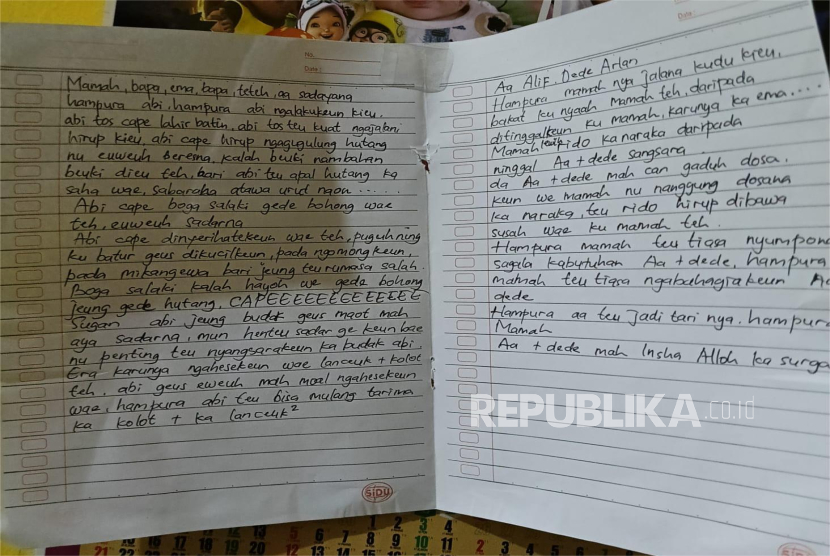 No.
Date:
Mamah, bapa, ema, bapa, teteh, aa sadayana
hampura abi, hampura abi ngalakukeun kieu,
abi tos cape lahir batin, abi tos teu kuat ngajalani
hirup kieu, abi cape hirup ngagugulung hutang
nu euweuh berema, kalah beuki nambahan
beuki dieu teh, bari abi teu apal hutang ka
saha wae, sabaraha atawa urud naon .....
Abi cape boga salaki gede bohong wae
teh, euweuh sadarna
Abi cape dinyerihatekeun wae teh, puguhning
ku batur geus dikucilkeun, pada ngomongkeun,
pada mikangewa bari jeung teu rumasa salah.
Boga salaki kalah hayoh we gede bohong
jeung gede hutang, CAPEEEEEEEEEEEEE
Sugan abi jeung budak geus maot mah
aya sadarna, mun henteu sadar ge keun bae
nu penting teu nyangsarakeun ka budak abi,
Era karunya ngahesekeun wae lanceuk + kolot
teh, abi geus eweuh mah moal ngahesekeun
wae, hampura abi teu bisa mulang tarima
ka kolot + ka lanceuk²
SIDU
Date:
Aa Alif, Dede Arlan
Hampura mamah nya jalana kudu kieu,
bakat ku nyaah mamah teh, daripada
ditinggalkeun ku mamah, karunya ka ema....
Mamah rido ka naraka daripada
ninggal Aa + dede sangsara
da Aa + dede mah can gaduh dosa,
keun we mamah nu nanggung dosana
ka naraka, teu rido hirup dibawa
susah wae ku mamah teh.
Hampura mamah teu tiasa nyumpone
sagala kabutuhan Aa + dede, hampura
mamah teu tiasa ngabahagiakeun Aa
dede
Hampura aa teu jadi tari nya. hampura
Mamah
Aa + dede mah Insha Alloh ka surga
REPUBLIKA.co.id
SIDU
1 2 3 4
5 6 7 8 9 10 11
16 17 18 19 20
12 13 14
2 3 4 5 6 7
21 22